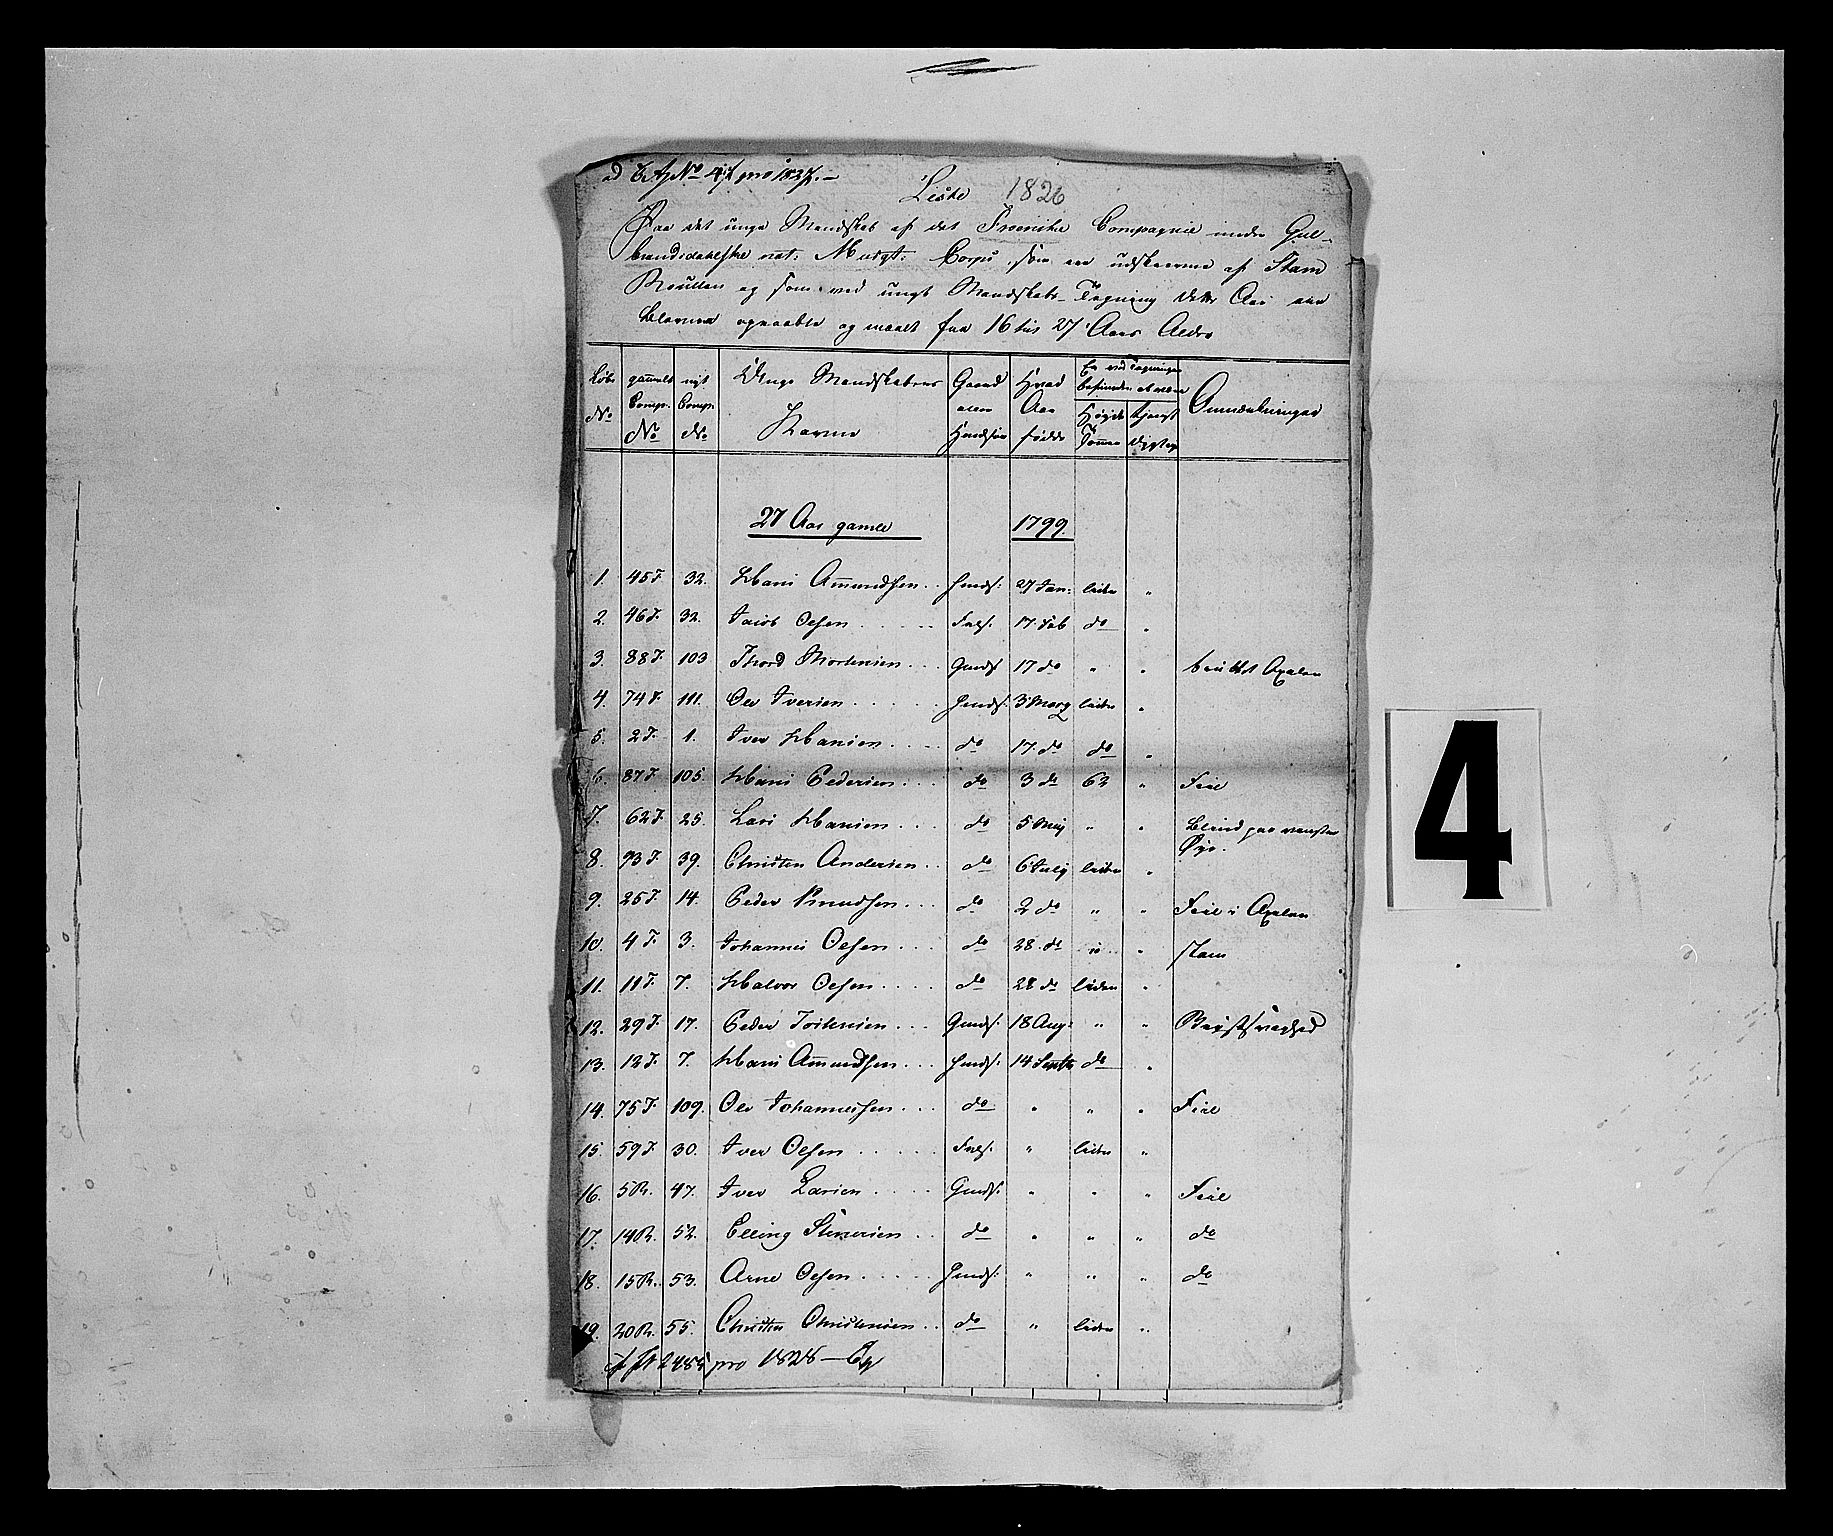 ad No 41 pro 1827.
Liste 1826
Paa det unge Mandskab af det Froenske Compagnie under Gul-
brandsdahlske nat: Musqt: Corps, som ere udskrevne af Stam
Roullen og som ved ungt Mandskabs-Tagning dette Aar ere
blevne opraabte og maalt fra 16 til 27 Aars Alder
Løbe No | gammelt Comp. No | nyt Comp. No | Unge Mandskabers Navne | Gaard eller Huusmænd | Hvad Aar fødde | Er ved Tagningen befunden at være Høyde Tommer | tjenst dygtig | Anmærkninger
27 Aar gamle 1799.
1. 45 F. 32. Hans Amundsen Huuss: 27 Jan: liden "
2. 46 F. 32. Jacob Olsen 17 Feb do "
3. 88 F. 103 Thord Mortensen Gaards: 17 do " " brudt Axelen
4. 74 F. 111. Ole Iversen Huuss: 3 Marz liden "
5. 2 F. 1. Iver Hansen do 17 do do "
6. 87 F. 105. Hans Pedersen do 3 do 62 " Feil
7. 62 F. 25. Lars Hansen do 5 Maj " " Blind paa venstre
Øye.
8. 93 F. 39. Christen Andersen do 6 July liden "
9. 25 F. 14. Peder Knudsen do 2 do " " Feil i Axelen
10. 4 F. 3. Johannes Olsen do 28 do " " stam
11. 11 F. 7. Halvor Olsen do 28 do liden "
12. 29 F. 17. Peder Gaards: 18 Aug: " " Brystsvaghed
13. 12 F. 7. Hans Amundsen Huuss: 14 Septb do "
14. 75 F. 109. Ole Johannessen do " " " Feil
15. 59 F. 30. Iver Olsen " liden "
16. 5 R. 47. Iver Larsen Gaards: " " " Feil
17. 14 R. 52. Elling Stenersen do " " " do
18. 15 R. 53. Arne Olsen Huuss: " " " do
19. 20 R. 55. Christen Christensen do " liden "
2485 pro 1828
4